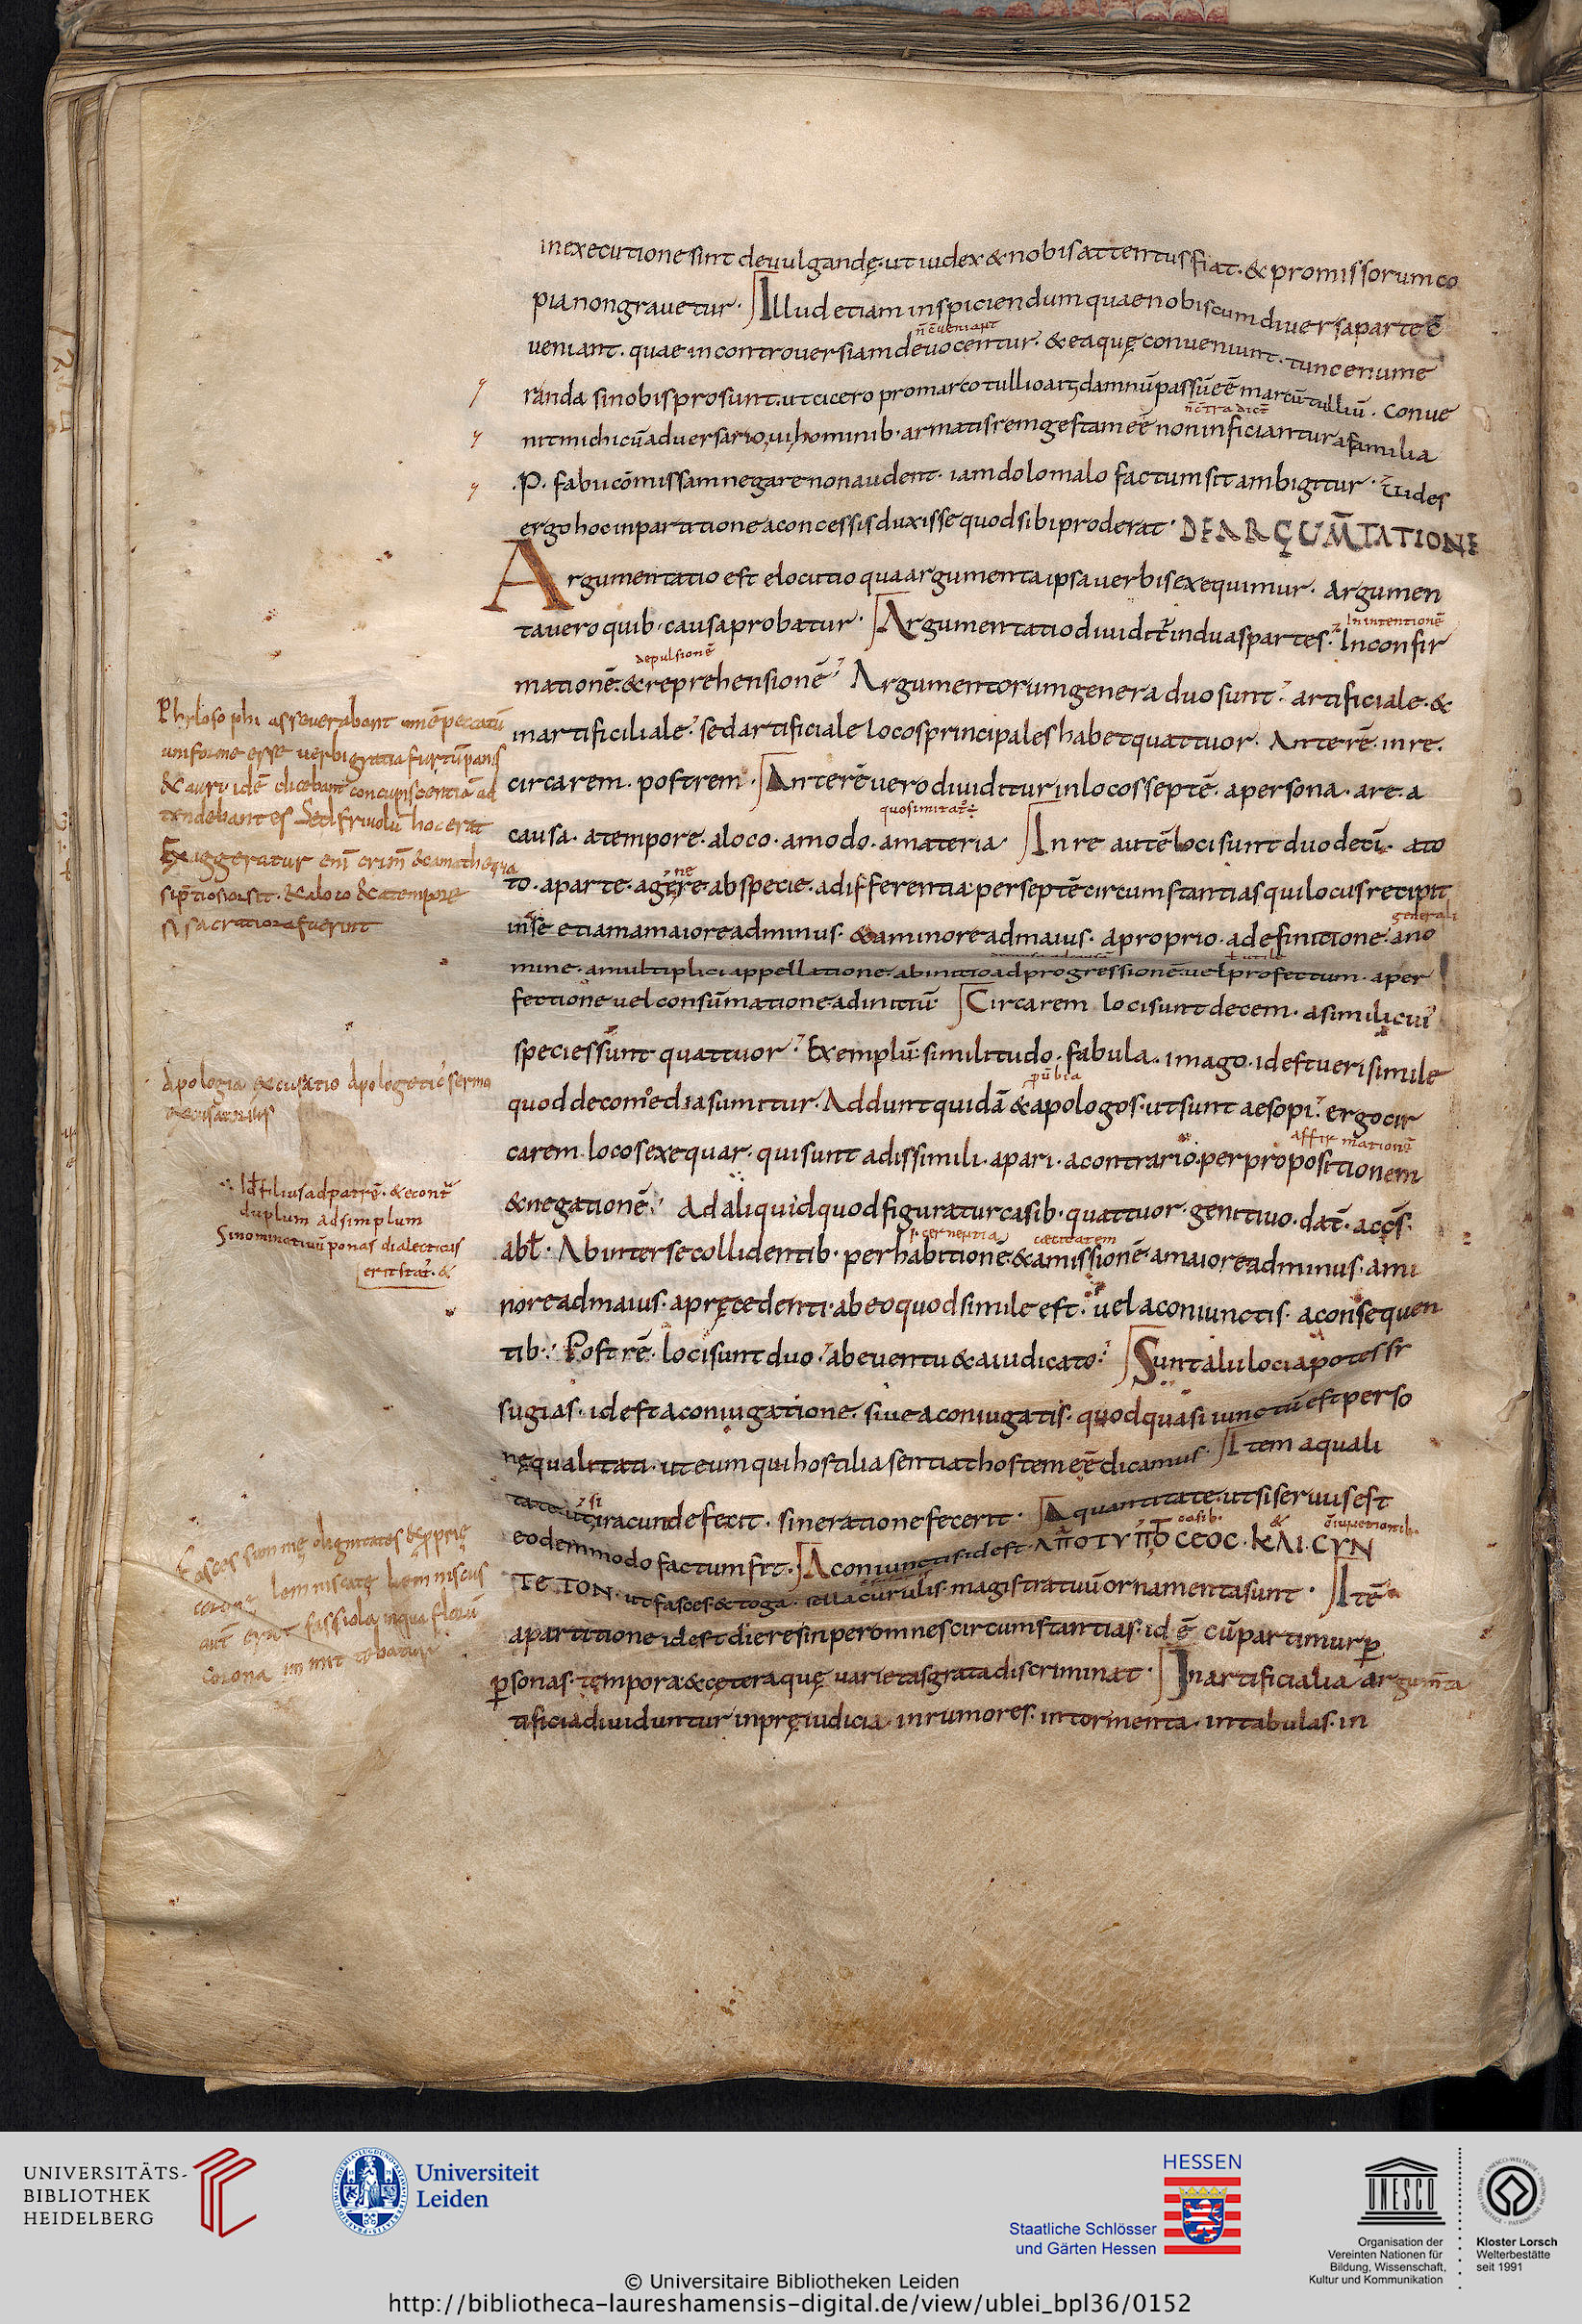 in executione sint deuulgandę· ut iudex & nobis attentus fiat· & promissorum co
pia non grauetur· Illud etiam inspiciendum quae nobiscum diuersa parte c̄
n̄ c̄ueniant
ueniant· quae in controuersiam deuocentur· & ea quę conueniunt· tunc enume
randa si nobis prosunt· ut cicero pro marco tullio ait damnū passū eē marcū tulliū· Conue
n̄ c̄tradict̄
nit michi cū aduersario, ui, hominib· armatis rem gestam eē non inficiantur a familia
·P· fabii cōmissam negare non audent· iam dolo malo factum sit ambigitur· Uides
ergo hoc in partitione a concessis duxisse quod sibi proderat· DE ARGUM̄TATIONE
Argumentatio est elocutio qua argumenta ipsa uerbis exequimur· Argumen
ta uero quib· causa probatur· Argumentatio diuidit̄ in duas partes· In confir
In intentionē
depulsionē
mationē· & reprehensionē Argumentorum genera duo sunt· artificiale· &
inartificiliale· sed artificiale locos principales habet quattuor· Ante rē· in re·
circa rem· post rem· Ante rē uero diuiditur in locos septē· a persona· a re· a
quos imitat̄
causa· a tempore· a loco· a modo· a materia· In re autē loci sunt duodeci· a to
to· a parte· a genere· ab specie· a differentia· per septē circumstantias qui locus recipit
in se etiam a maiore ad minus· & a minore ad maius· a proprio· a definitione· a no
generali
ł utile
mine· a multiplici appellatione· ab initio ad progressionē uel profectum· a per
fectione uel consūmatione ad initiū· Circa rem loci sunt decem· a simili cui
species sunt quattuor· Exemplū· similitudo· fabula· imago· id est ueri simile
quod de comoedia sumitur· Addunt quidā & apologos· ut sunt aesopi· ergo cir
affirmationē
ca rem locos exequar· qui sunt a dissimili· a pari· a contrario· per propositionem
& negationē· Ad aliquid quod figuratur casib· quattuor· genitiuo· dat̄· accs̄·
cernentia caecitatem
abl̄· Ab inter se collidentib· per habitionē· & amissionē· a maiore ad minus· a mi
nore ad maius· a pręcedenti· ab eo quod simile est· uel a coniunctis· a consequen
tib· Post rē· loci sunt duo· ab euentu & a iudicato· Sunt alii loci apotes sr
sugias· id est a coniugatione· siue a coniugatis· quod quasi iunctū est perso
nę qualitati· ut eum qui hostilia sentiat hostem eē dicamus· Item a quali
tate· ut si iracunde fecit· sine ratione fecerit· A quantitate· ut si seruus est
casib. &
eodem modo factum sit· A coniunctis· id est· ΑΠΟΤΥΠΤΟCΕΟC· ΚΑΙ· CΥΝ
ΤΕΤΟΝ· ut fasces & toga· sella curulis· magistratuū ornamenta sunt· Itē
a partitione id est dieresin per omnes circumstantias· id ē cū partimur p
psonas· tempora & cętera quę uarietas grata discriminat· Inartificialia argum̄ta
tificia diuiduntur in pręiudicia· in rumores· in tormenta· in tabulas· in
Philosophi asseuerabant omē peccatū
uniforme esse uerbi gratia furtū panis
& auri idē dicebant concupiscentiā ad
tendebant es Sed friuolū hoc erat
Exaggeratur eni crim̄ &
& a loco & a tempore
si sacratiora fuerint
Apologia excusatio Apologetic sermo
excusatorius
Id filius ad patrē· & econt̄
duplum ad simplum
Si nominatiuū ponas dialecticus
erit stat̄· &
Fasces summę dignitates
coronę lemniscatę lemniscus
aut̄ erat fassiola in qua florū
corona innectebatur
UNIVERSITÄTS-
BIBLIOTHEK
HEIDELBERG
Universiteit
Leiden
HESSEN
Staatliche Schlösser
und Gärten Hessen
UNESCO
Organisation der
Vereinten Nationen für
Bildung, Wissenschaft,
Kultur und Kommunikation
Kloster Lorsch
Welterbestätte
seit 1991
© Universitaire Bibliotheken Leiden
http://bibliotheca-laureshamensis-digital.de/view/ublei_bpl36/0152